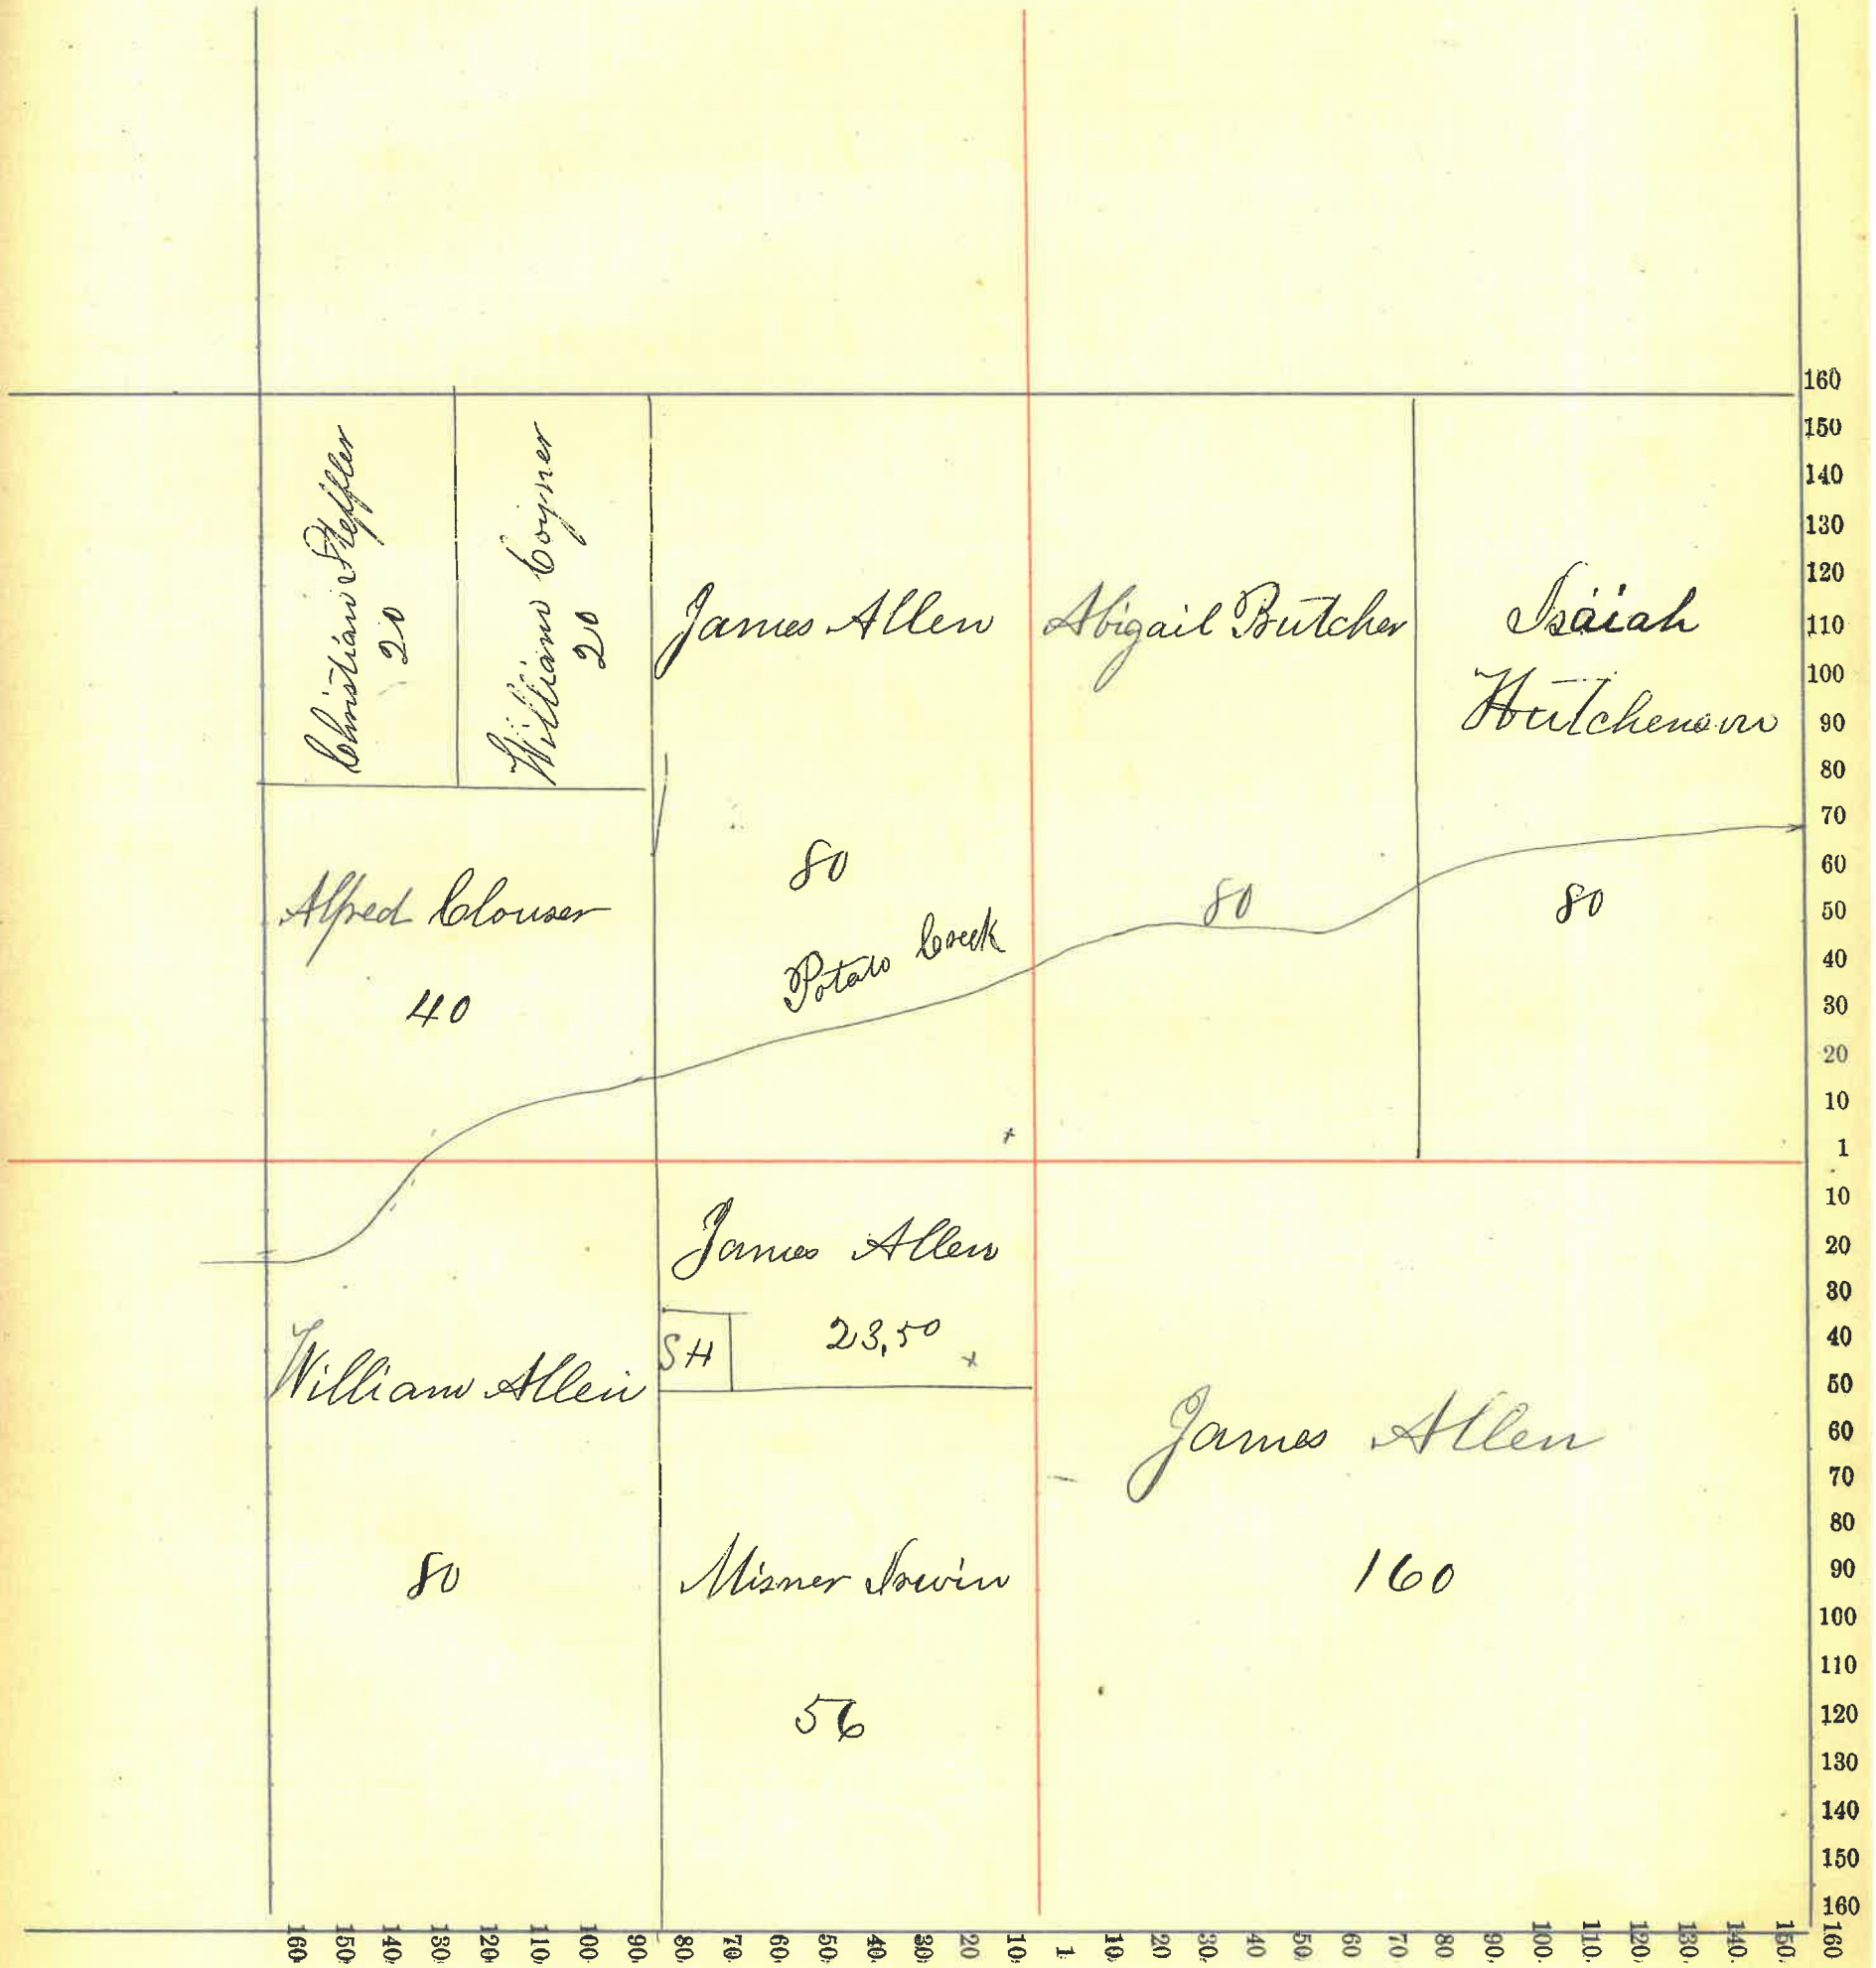 Christian Steffler
20
William Coyner
20
James Allen
80
Abigail Butcher
80
Isaiah
Hutchenson
80
Alfred Clouser
40
Potato Creek
James Allen
23,50
SH
William Allen
80
Misner Irwin
56
James Allen
160
160
150
140
130
120
110
100
90
80
70
60
50
40
30
20
10
1
10
20
30
40
50
60
70
80
90
100
110
120
130
140
150
160
160 150 140 130 120 110 100 90 80 70 60 50 40 30 20 10 1 10 20 30 40 50 60 70 80 90 100 110 120 130 140 150 160